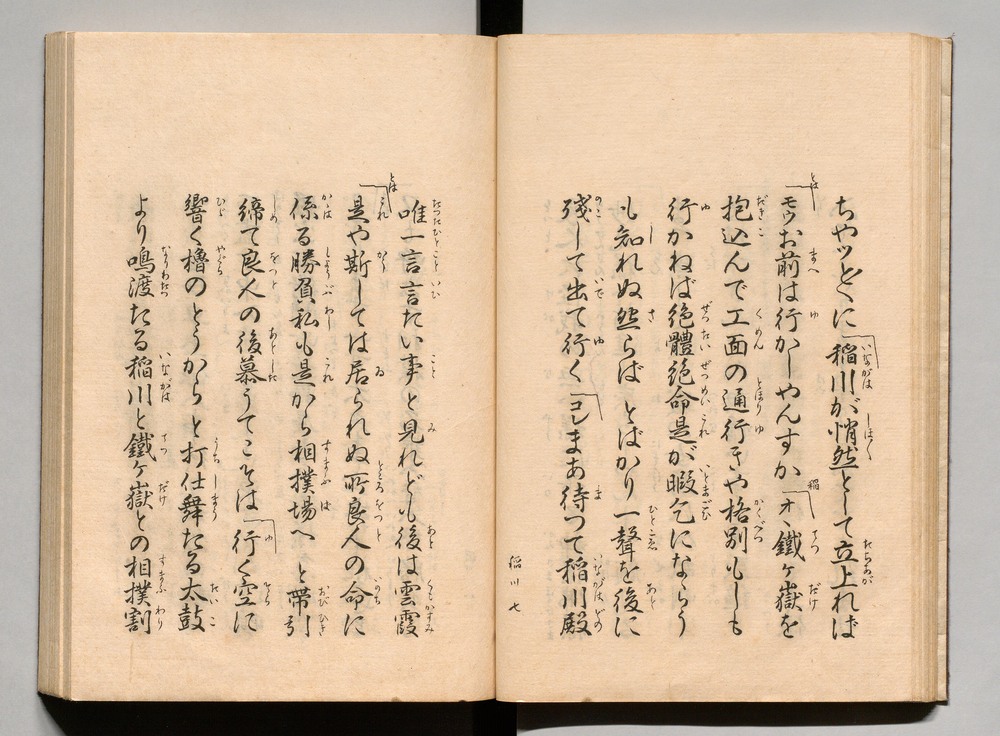 ちやッとくに「稲川が悄然として立上れば
モウお前は行かしやんすか「オヽ鐵ヶ嶽を
抱込んで工面の通行きや格別もしも
行かねば絶體絶命是が暇乞にならう
も知れぬ然らば とばかり一聲を後に
残して出て行く「コレまあ待つて稲川殿
稲川 七
唯一言言たい事と見れども後は雲霞
「是や斯しては居られぬ所良人の命に
係る勝負私も是から相撲場へ と帶引
締て良人の後慕うてこそは「行く空に
響く櫓のとうからと打仕舞たる太鼓
より鳴渡たる稲川と鐵ヶ嶽との相撲割